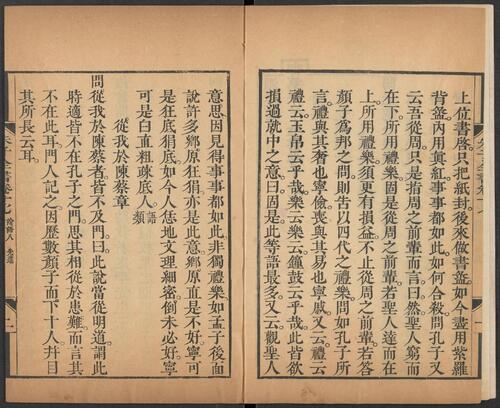 上位書啓只把紙封後來做書盝如今盡用紫羅
背盝內用真紅事事都如此如何合殺問孔子又
云吾從周只是指周之前輩而言曰然聖人窮而
在下所用禮樂固是從周之前輩若聖人達而在
上所用禮樂須更有損益不止從周之前輩若答
顏子為邦之問則告以四代之禮樂問如孔子所
言禮與其奢也寧儉喪與其易也寧戚又云禮云
禮云玉帛云乎哉樂云樂云鐘鼓云乎哉此皆欲
損過就中之意曰固是此等語最多又云觀聖人
意思因見得事事都如此非獨禮樂如孟子後面
說許多鄉原狂狷亦是此意鄉原直是不好寧可
是狂底狷底如今人恁地文理細密倒未必好寧
可是白直粗疎底人語類
從我於陳蔡章
問從我於陳蔡者皆不及門曰此說當從明道謂此
時適皆不在孔子之門思其相從於患難而言其
不在此耳門人記之因歷數顏子而下十人并目
其所長云耳